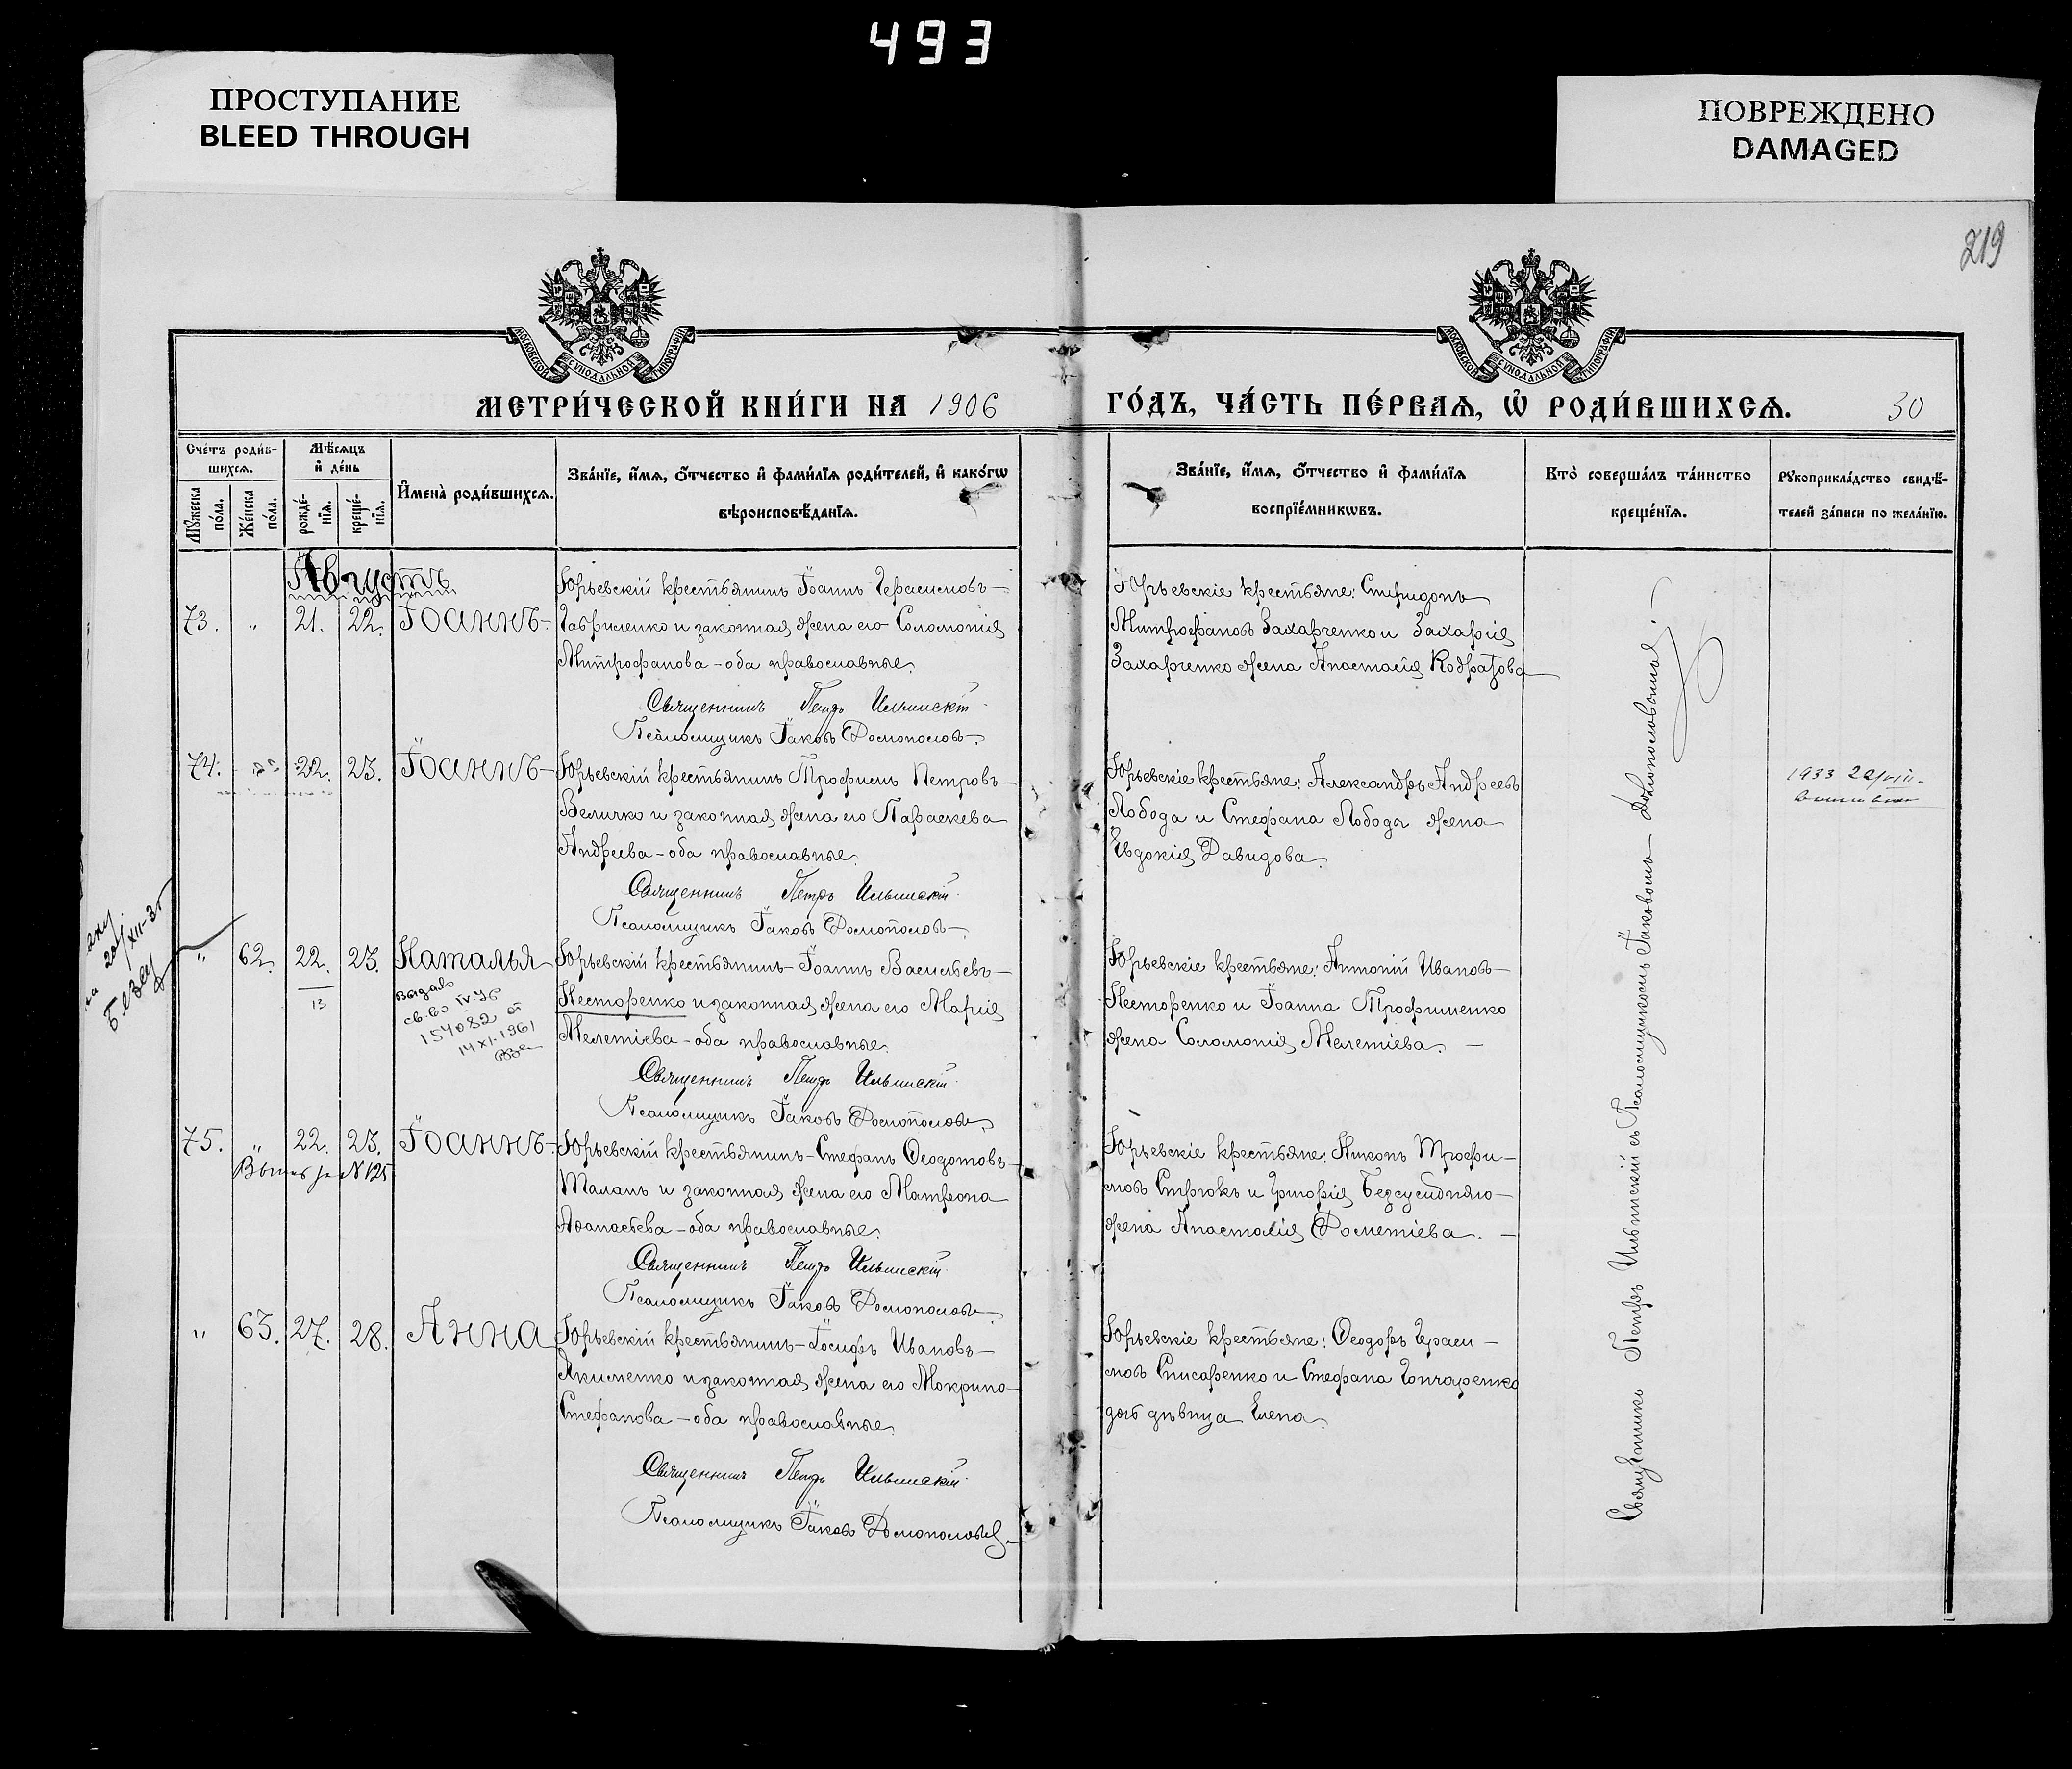 493
ПРОСТУПАНИЕ
BLEED THROUGH
ПОВРЕЖДЕНО
DAMAGED
219
МОСКОВСКОЙ СѴНОДАЛЬНОЙ ТИПОГРАФІИ
МОСКОВСКОЙ СѴНОДАЛЬНОЙ ТИПОГРАФІИ
МЕТРИ́ЧЕСКОЙ КНИ́ГИ НА 1906
ГО́ДЪ, ЧА́СТЬ ПЕ́РВАЯ, Ѡ҆ РОДИ́ВШИХСЯ. 30
Сче́тъ роди́в-
шихся.
Мѣ́сяцъ
и҆ де́нь
Мꙋ́жеска по́ла.
Же́нска по́ла.
рожде́-нїя.
креще́-нїя.
И҆мена̀ роди́вшихся.
Зва́нїе, и҆́мя, ѻ҆́тчество и҆ фами́лїя роди́телей, и҆ како́гѡ
вѣроисповѣ́данїя.
Зва́нїе, и҆́мя, ѻ҆́тчество и҆ фами́лїя
воспрїе́мникѡвъ.
Кто̀ соверша́лъ та́инство
креще́нїя.
Рꙋкоприкла́дство свидѣ́-
телей за́писи по жела́нїю.
Августъ
73. " 21. 22. Іоаннъ
Юрьевскій крестьянинъ Іоаннъ Герасимовъ
Гавриленко и законная жена его Соломонія
Митрофанова - оба православные.
Священникъ Петръ Ильинскій
Псаломщикъ Іаковъ Домонтовъ
Юрьевскіе крестьяне: Спиридонъ
Митрофановъ Захарченко и Захарія
Захарченко жена Анастасія Кодратова
74. 22. 23. Іоаннъ
Юрьевскій крестьянинъ Трофимъ Петровъ
Величко и законная жена его Параскева
Андреева - оба православные.
Священникъ Петръ Ильинскій
Псаломщикъ Іаковъ
Юрьевскіе крестьяне: Александръ Андреевъ
Лобода и Стефана Лободы жена
Евдокія Давидова.
1933
" 62. 22. 23. Наталья
13
Выдано
св-во IV УБ
154082 от
14 XI-1961
Юрьевскій крестьянинъ Іоаннъ Васильевъ
Несторенко и законная жена его Марія
Мелетіева - оба православные.
Священникъ Петръ Ильинскій
Псаломщикъ Іаковъ
Юрьевскіе крестьяне: Антоній Ивановъ
Несторенко и Іоанна Трофименко
жена Соломонія Мелетіева.
75. " 22. 23. Іоаннъ
N 125
Юрьевскій крестьянинъ Стефанъ Ѳеодотовъ
Таланъ и законная жена его Матрона
Аѳанасьева - оба православные.
Священникъ Петръ Ильинскій
Псаломщикъ Іаковъ
Юрьевскіе крестьяне: Никонъ Трофи-
мовъ Стрюкъ и
жена Анастасія Дометіева.
" 63. 27. 28. Анна
Юрьевскій крестьянинъ Іосифъ Ивановъ
Якименко и законная жена его Мокрина
Стефанова - оба православные
Священникъ Петръ Ильинскій
Псаломщикъ Іаковъ
Юрьевскіе крестьяне: Ѳеодоръ Гераси-
мовъ Списаренко и Стефана Гончаренко
дочь дѣвица Елена.
Священникъ Петръ Ильинскій съ Псаломщикомъ Іаковомъ